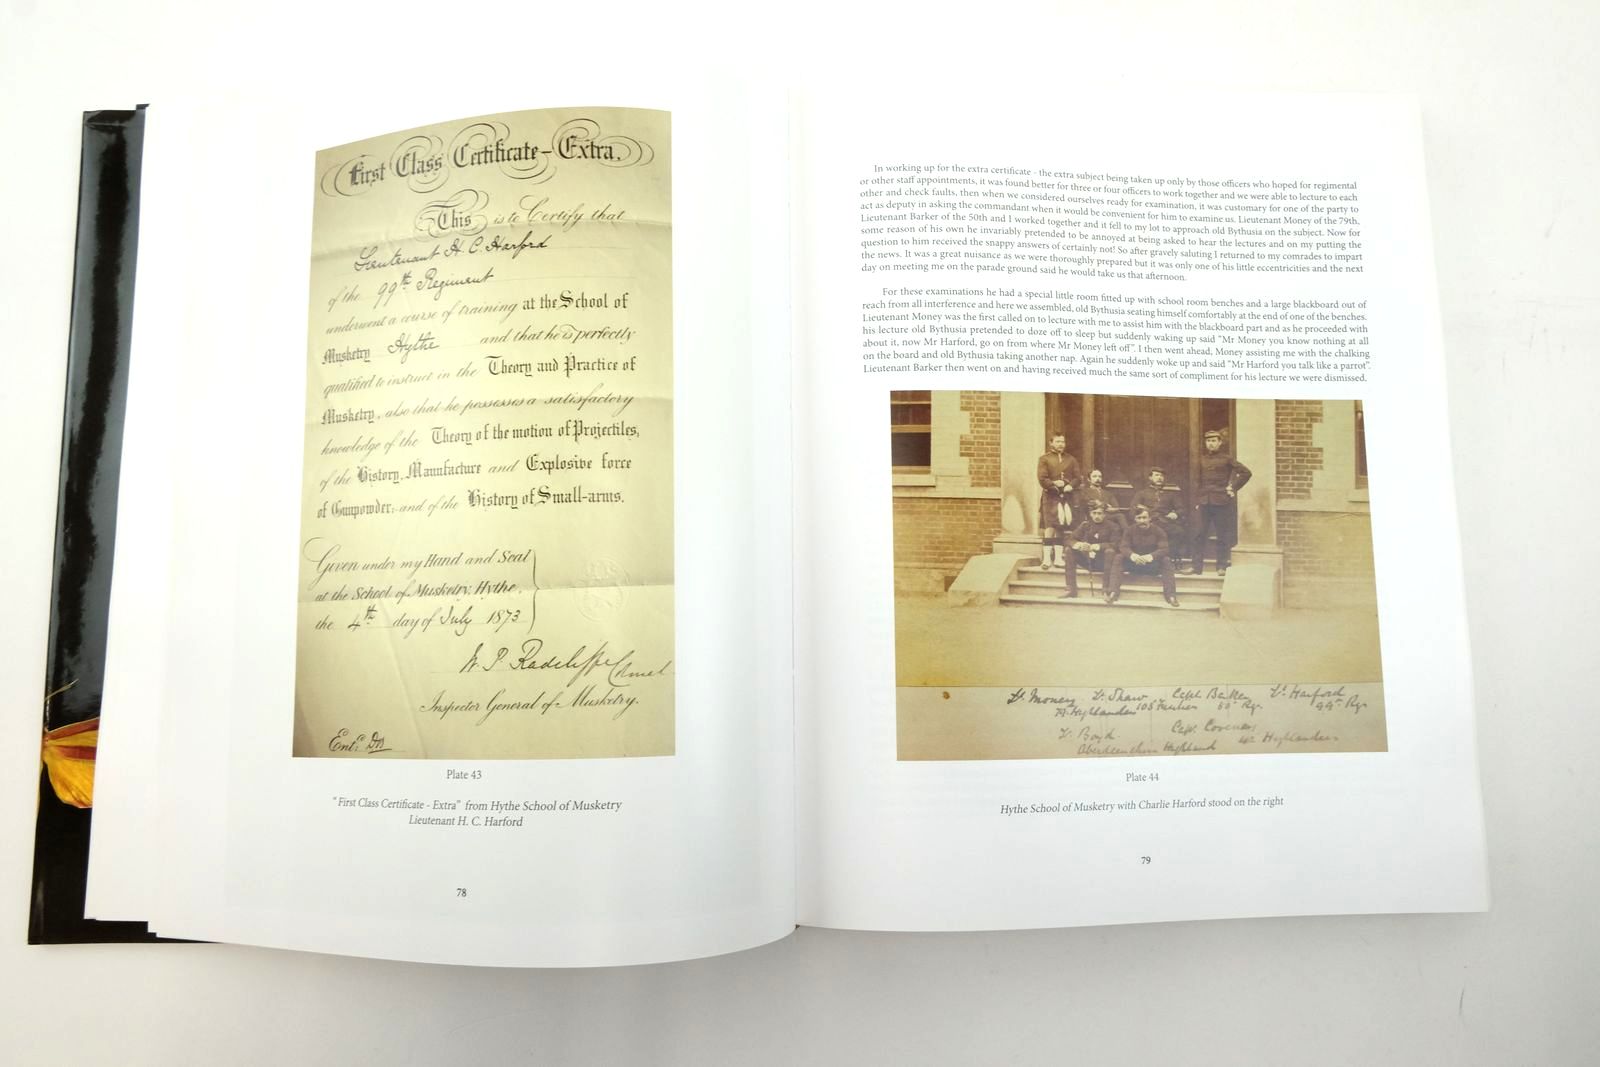 First Class Certificate – Extra.
This is to Certify that
Lieutenant H. C. Harford
of the 99th Regiment
underwent a course of training at the School of
Musketry Hythe and that he is perfectly
qualified to instruct in the Theory and Practice of
Musketry, also that he possesses a satisfactory
knowledge of the Theory of the motion of Projectiles,
of the History, Manufacture and Explosive force
of Gunpowder; and of the History of Small-arms.
Given under my Hand and Seal
at the School of Musketry, Hythe,
the 4th day of July 1873
W. P. Radcliffe Colonel
Inspector General of Musketry.
Entd.
Plate 43
"First Class Certificate - Extra" from Hythe School of Musketry
Lieutenant H. C. Harford
78
In working up for the extra certificate - the extra subject being taken up only by those officers who hoped for regimental
or other staff appointments, it was found better for three or four officers to work together and we were able to lecture to each
other and check faults, then when we considered ourselves ready for examination, it was customary for one of the party to
act as deputy in asking the commandant when it would be convenient for him to examine us. Lieutenant Money of the 79th,
Lieutenant Barker of the 50th and I worked together and it fell to my lot to approach old Bythusia on the subject. Now for
some reason of his own he invariably pretended to be annoyed at being asked to hear the lectures and on my putting the
question to him received the snappy answers of certainly not! So after gravely saluting I returned to my comrades to impart
the news. It was a great nuisance as we were thoroughly prepared but it was only one of his little eccentricities and the next
day on meeting me on the parade ground said he would take us that afternoon.
For these examinations he had a special little room fitted up with school room benches and a large blackboard out of
reach from all interference and here we assembled, old Bythusia seating himself comfortably at the end of one of the benches.
Lieutenant Money was the first called on to lecture with me to assist him with the blackboard part and as he proceeded with
his lecture old Bythusia pretended to doze off to sleep but suddenly waking up said "Mr Money you know nothing at all
about it, now Mr Harford, go on from where Mr Money left off". I then went ahead, Money assisting me with the chalking
on the board and old Bythusia taking another nap. Again he suddenly woke up and said "Mr Harford you talk like a parrot".
Lieutenant Barker then went on and having received much the same sort of compliment for his lecture we were dismissed.
Lt. Money Lt. Shaw Capt Barker Lt. Harford
79 Highlanders 105 Fusiliers 50 Rgt. 99th Rgt
Lt. Boyd Capt. Coveney
Aberdeenshire Highland 42 Highlanders
Plate 44
Hythe School of Musketry with Charlie Harford stood on the right
79